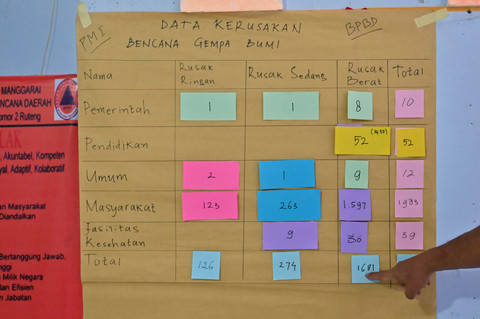 PMI
DATA KERUSAKAN
BENCANA GEMPA BUMI
BPBD
Nama Rusak Ringan Rusak Sedang Rusak Berat Total
Pemerintah 1 1 8 10
Pendidikan 52 52
Umum 2 1 9 12
Masyarakat 123 263 1.597 1983
Fasilitas Kesehatan 9 30 39
Total 126 274
MANGGARAI
BENCANA DAERAH
omor 2 Ruteng
Akuntabel, Kompeten
Adaptif, Kolaboratif
Masyarakat
Diandalkan
Bertanggung Jawab,
Milik Negara
dan Efisien
Jabatan